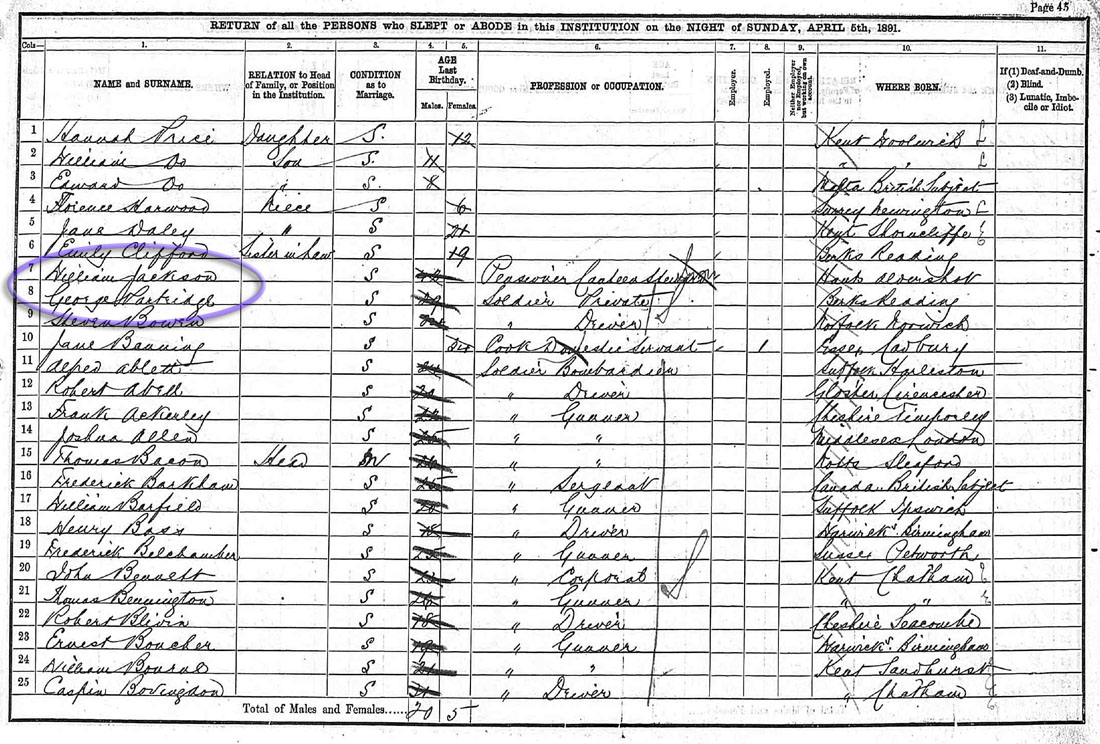 Page 45
RETURN of all the PERSONS who SLEPT or ABODE in this INSTITUTION on the NIGHT of SUNDAY, APRIL 5th, 1891.
Cols— 1. 2. 3. 4. 5. 6. 7. 8. 9. 10. 11.
NAME and SURNAME. RELATION to Head of Family, or Position in the Institution. CONDITION as to Marriage. AGE Last Birthday. Males. Females. PROFESSION or OCCUPATION. Employer. Employed. Neither Employer nor Employed, but working on own account. WHERE BORN. If (1) Deaf-and-Dumb. (2) Blind. (3) Lunatic, Imbecile or Idiot.
1 Hannah Price Daughter S. 12 Kent Woolwich
2 William Do Son S. 11 "
3 Edward Do " S. 8 Malta British Subject
4 Florence Harwood Niece S 6 Surrey Newington
5 Jane Daley " S 21 Kent Shorncliffe
6 Emily Clifford Sister in law S 19 Berks Reading
7 William Jackson S Pensioner Canteen Hants Aldershot
8 George Partridge S Soldier Private Berks Reading
9 Steven Bowen S " Driver Norfolk Norwich
10 Jane Banning S 24 Cook Domestic Servant 1 Essex
11 Alfred Ablett S Soldier Bombardier Suffolk Harleston
12 Robert Abell S " Driver Gloster Cirencester
13 Frank Ackerley S " Gunner Cheshire Timperley
14 Joshua Allen S " " Middlesex London
15 Thomas Bacon Head " " Notts Sleaford
16 Frederick Barkham S " Sergeant Canada British Subject
17 William Barfield S " Gunner Suffolk Ipswich
18 Henry Bass S " Driver Warwick Birmingham
19 Frederick Belchamber S " Gunner Sussex Petworth
20 John Bennett S " Corporal Kent Chatham
21 Thomas Bennington S " Gunner " "
22 Robert Blivin S " Driver Cheshire Seacombe
23 Ernest Boucher S " Gunner Warwick Birmingham
24 William Bourne S " " Kent Sandhurst
25 Caspin Bovingdon S " Driver " Chatham
Total of Males and Females...... 20 5